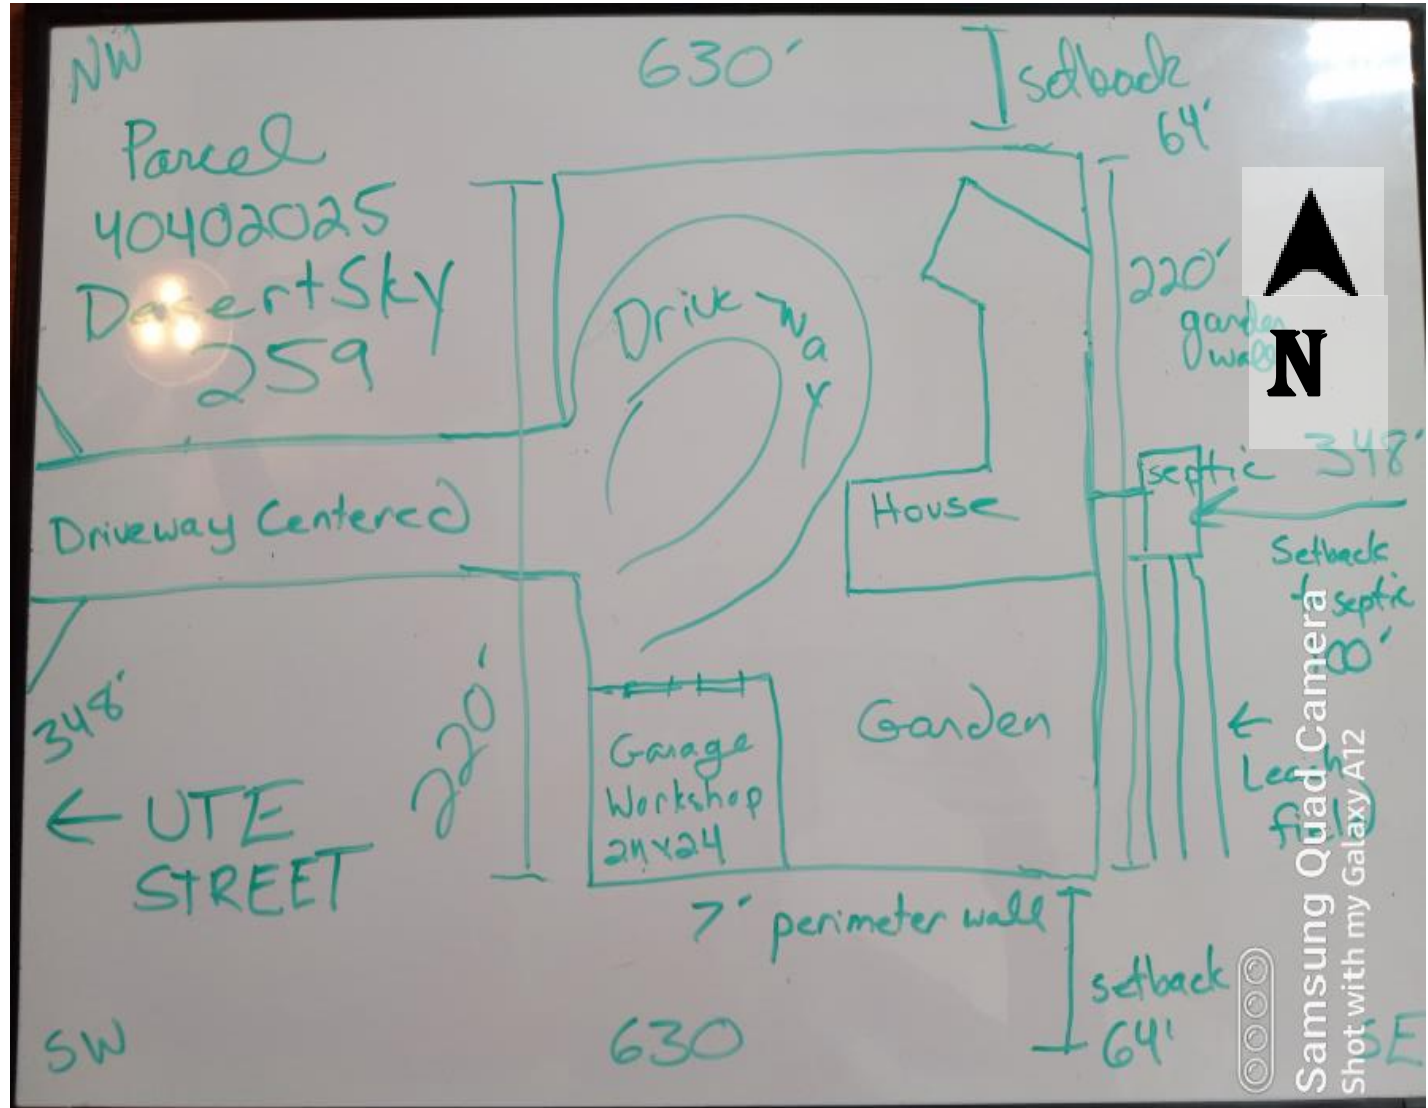 NW
630'
setback
64'
Parcel
40402025
Desert Sky
259
Driveway
220'
garden
wall
N
septic
348'
House
Driveway Centered
Setback
to septic
00'
348'
220'
Garden
Garage
Workshop
24x24
←
Leach
field
← UTE
STREET
7' perimeter wall
setback
64'
SW
630
SE
Samsung Quad Camera
Shot with my Galaxy A12